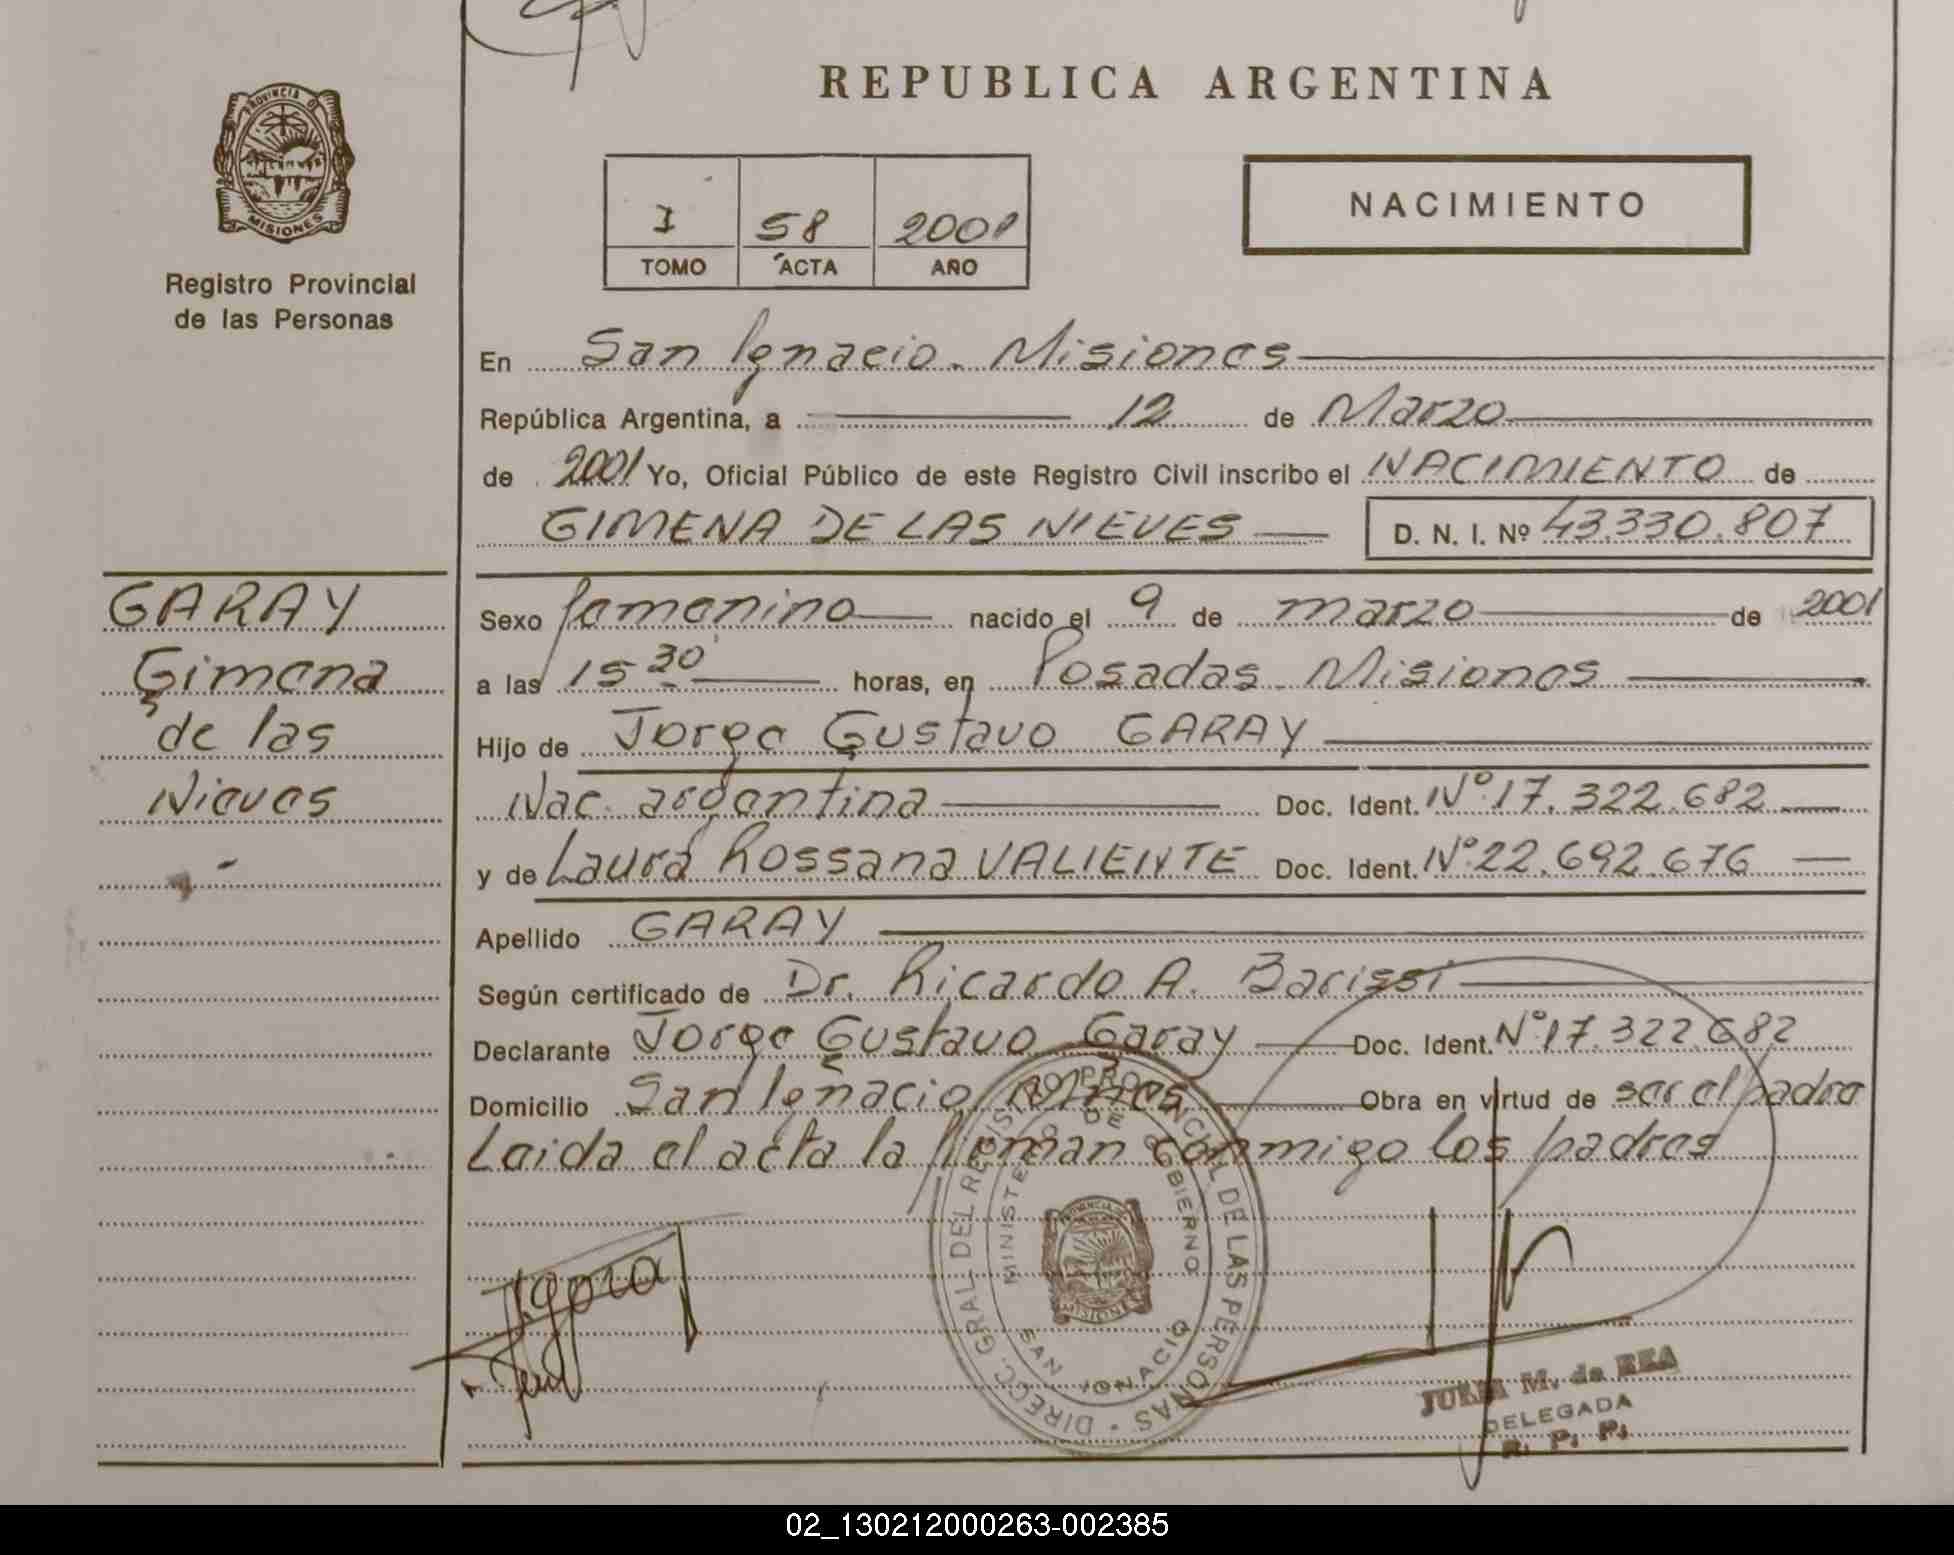 REPUBLICA ARGENTINA
PROVINCIA DE
MISIONES
Registro Provincial
de las Personas
I 58 2001
TOMO ACTA AÑO
NACIMIENTO
En San Ignacio. Misiones
República Argentina, a 12 de Marzo
de 2001 Yo, Oficial Público de este Registro Civil inscribo el NACIMIENTO de
GIMENA DE LAS NIEVES D. N. I. Nº 43.330.807
GARAY
Gimena
de las
Nieves
Sexo femenino nacido el 9 de marzo de 2001
a las 15 30 horas, en Posadas. Misiones
Hijo de Jorge Gustavo GARAY
Nac. argentina Doc. Ident. Nº 17.322.682
y de Laura Rossana VALIENTE Doc. Ident. Nº 22.692.676
Apellido GARAY
Según certificado de Dr. Ricardo A. Barissi
Declarante Jorge Gustavo Garay Doc. Ident. Nº 17.322.682
Domicilio San Ignacio Mnes Obra en virtud de ser el padre
Leida el acta la firman conmigo los padres
DIRECC. GRAL. DEL REGISTRO PROVINCIAL DE LAS PERSONAS
MINISTERIO DE GOBIERNO
SAN IGNACIO
M. de REA
DELEGADA
R. P. P.
02_130212000263-002385